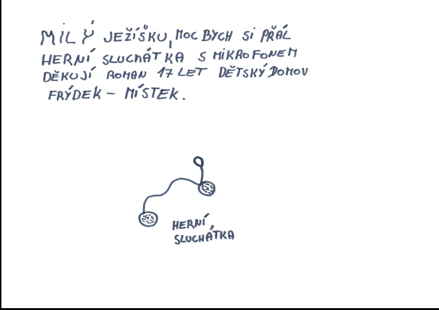 MILÝ JEŽÍŠKU, MOC BYCH SI PŘÁL
HERNÍ SLUCHÁTKA S MIKROFONEM
DĚKUJÍ ROMAN 17 LET DĚTSKÝ DOMOV
FRÝDEK - MÍSTEK.
HERNÍ
SLUCHÁTKA